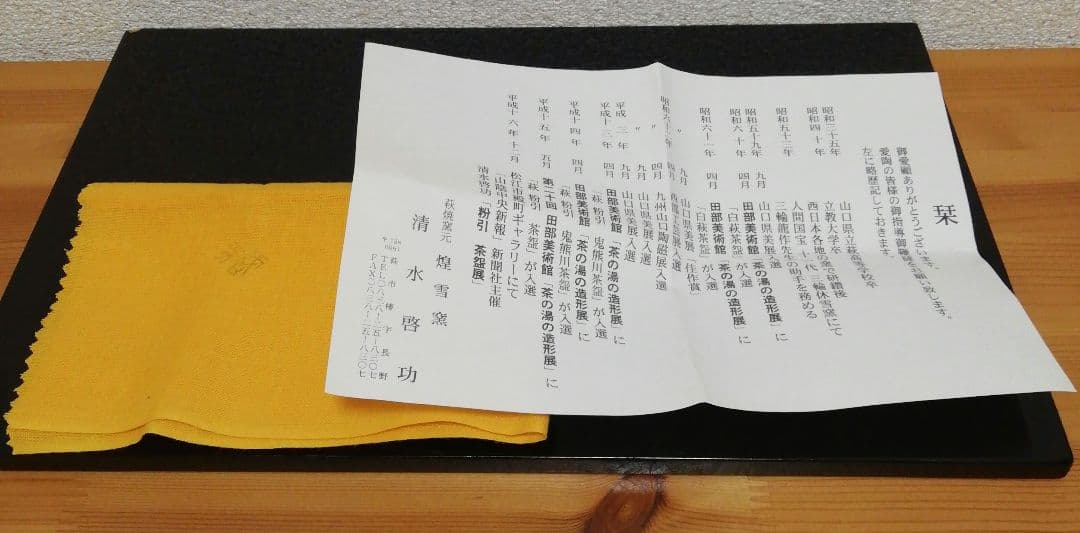 栞
御愛顧ありがとうございます。
愛陶の皆様の御指導御鞭撻をお願い致します。
左に略歴記しておきます。
昭和三十五年 山口県立萩高等学校卒
昭和四十年 立教大学卒
西日本各地の窯で研鑽後
昭和五十三年 人間国宝 十一代 三輪休雪窯にて
三輪龍作先生の助手を務める
昭和五十九年 九月 山口県美展入選
昭和六十年 四月 田部美術館「茶の湯の造形展」に
「白萩茶盌」が入選
昭和六十一年 四月 田部美術館「茶の湯の造形展」に
「白萩茶盌」が入選
〃 九月 山口県美展「佳作賞」
昭和六十三年 四月
〃 四月 九州山口陶磁展入選
〃 九月 山口県美展入選
平成三年 九月 山口県美展入選
平成十三年 四月 田部美術館「茶の湯の造形展」に
「萩 粉引 鬼熊川茶盌」が入選
平成十四年 四月 田部美術館「茶の湯の造形展」に
「萩 粉引 鬼熊川茶盌」が入選
平成十五年 五月 第二十回 田部美術館「茶の湯の造形展」に
「萩 粉引 茶盌」が入選
平成十六年 十二月 松江市殿町ギャラリーにて
「山陰中央新報」新聞社主催
清水啓功「粉引 茶盌展」
萩焼窯元 煌雪窯
清水啓功
萩市椿字長野
TEL〇八三八-二五-八三〇七
FAX〇八三八-二五-八三〇七